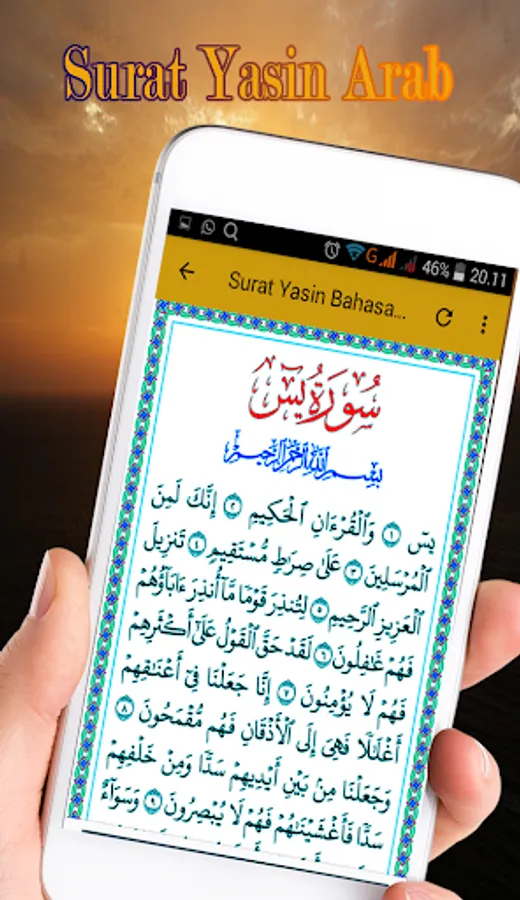 Surat Yasin Arab
46% 20.11
Surat Yasin Bahasa...
سُورَةُ يسٓ
بِسْمِ اللَّهِ الرَّحْمَٰنِ الرَّحِيمِ
يسٓ ١ وَٱلْقُرْءَانِ ٱلْحَكِيمِ ٢ إِنَّكَ لَمِنَ
ٱلْمُرْسَلِينَ ٣ عَلَىٰ صِرَٰطٍ مُّسْتَقِيمٍ ٤ تَنزِيلَ
ٱلْعَزِيزِ ٱلرَّحِيمِ ٥ لِتُنذِرَ قَوْمًا مَّآ أُنذِرَ ءَابَآؤُهُمْ
فَهُمْ غَٰفِلُونَ ٦ لَقَدْ حَقَّ ٱلْقَوْلُ عَلَىٰٓ أَكْثَرِهِمْ
فَهُمْ لَا يُؤْمِنُونَ ٧ إِنَّا جَعَلْنَا فِىٓ أَعْنَٰقِهِمْ
أَغْلَٰلًا فَهِىَ إِلَى ٱلْأَذْقَانِ فَهُم مُّقْمَحُونَ ٨
وَجَعَلْنَا مِنۢ بَيْنِ أَيْدِيهِمْ سَدًّا وَمِنْ خَلْفِهِمْ
سَدًّا فَأَغْشَيْنَٰهُمْ فَهُمْ لَا يُبْصِرُونَ ٩ وَسَوَآءٌ